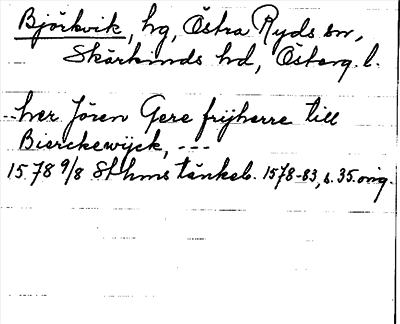 Björkvik, hg, Östra Ryds sn,
Skärkinds hd, Österg. l.
her Jören Gere frijherre till
Bierckewijck, ---
1578 9/8 Sthms tänkeb. 1578-83, s. 35. orig.